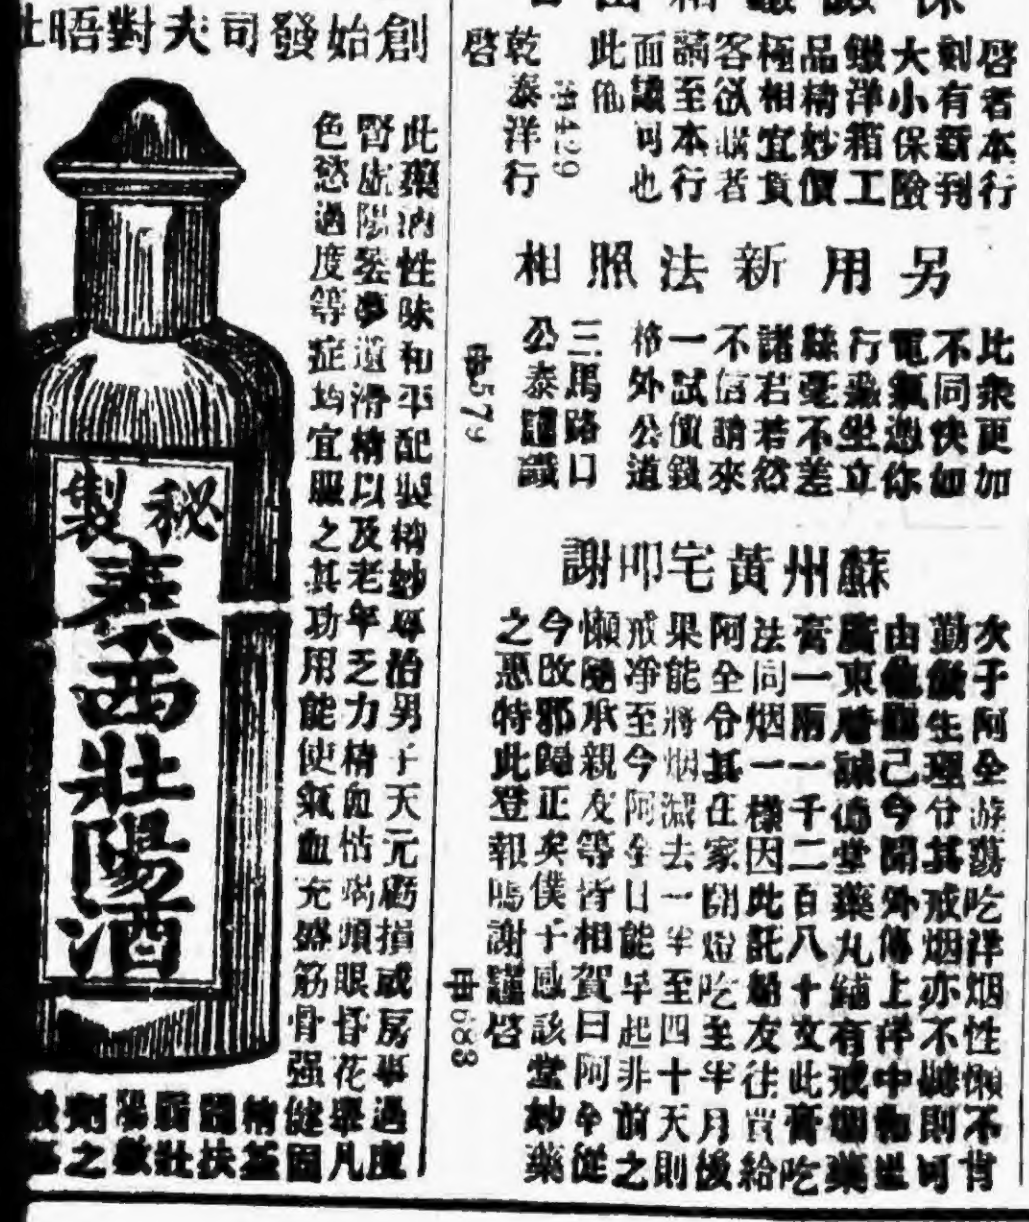 啓者本行
剏有新刊
大小保險
鐵洋箱工
品精妙價
極相宜貴
客欲購者
請至本行
面議可也
此佈
申429
乾泰洋行
啓
另用新法照相
比衆更加
不同快如
電氣憑你
行走坐立
絲毫不差
諸君若然
不信請來
一試價錢
格外公道
三馬路口
公泰謹識
申579
蘇州黃宅叩謝
次子阿全游蕩吃洋烟性懶不肯
勤儉生理令其戒烟亦不聽則可
由他而已今聞外傳上洋中和里
廣東唐誠德堂藥丸鋪有戒烟藥
膏一兩一千二百八十文此膏吃
法同烟一樣因此託敝友往買給
阿全令其在家開燈吃至半月後
果能將烟減去一半至四十天則
戒净至今阿全日能早起非前之
懶隨承親友等皆相賀曰阿全從
今改邪歸正矣僕千感該堂妙藥
之恩特此登報鳴謝謹啓
申683
創始發司夫對晤
此藥酒性味和平配製精妙專治男子天元虧損或房事過度
腎虛陽萎夢遺滑精以及老年乏力精血枯竭頭眼昏花舉凡
色慾過度等症均宜服之其功用能使氣血充盛筋骨强健固
精益
扶
壯
秘製
泰西壯陽酒